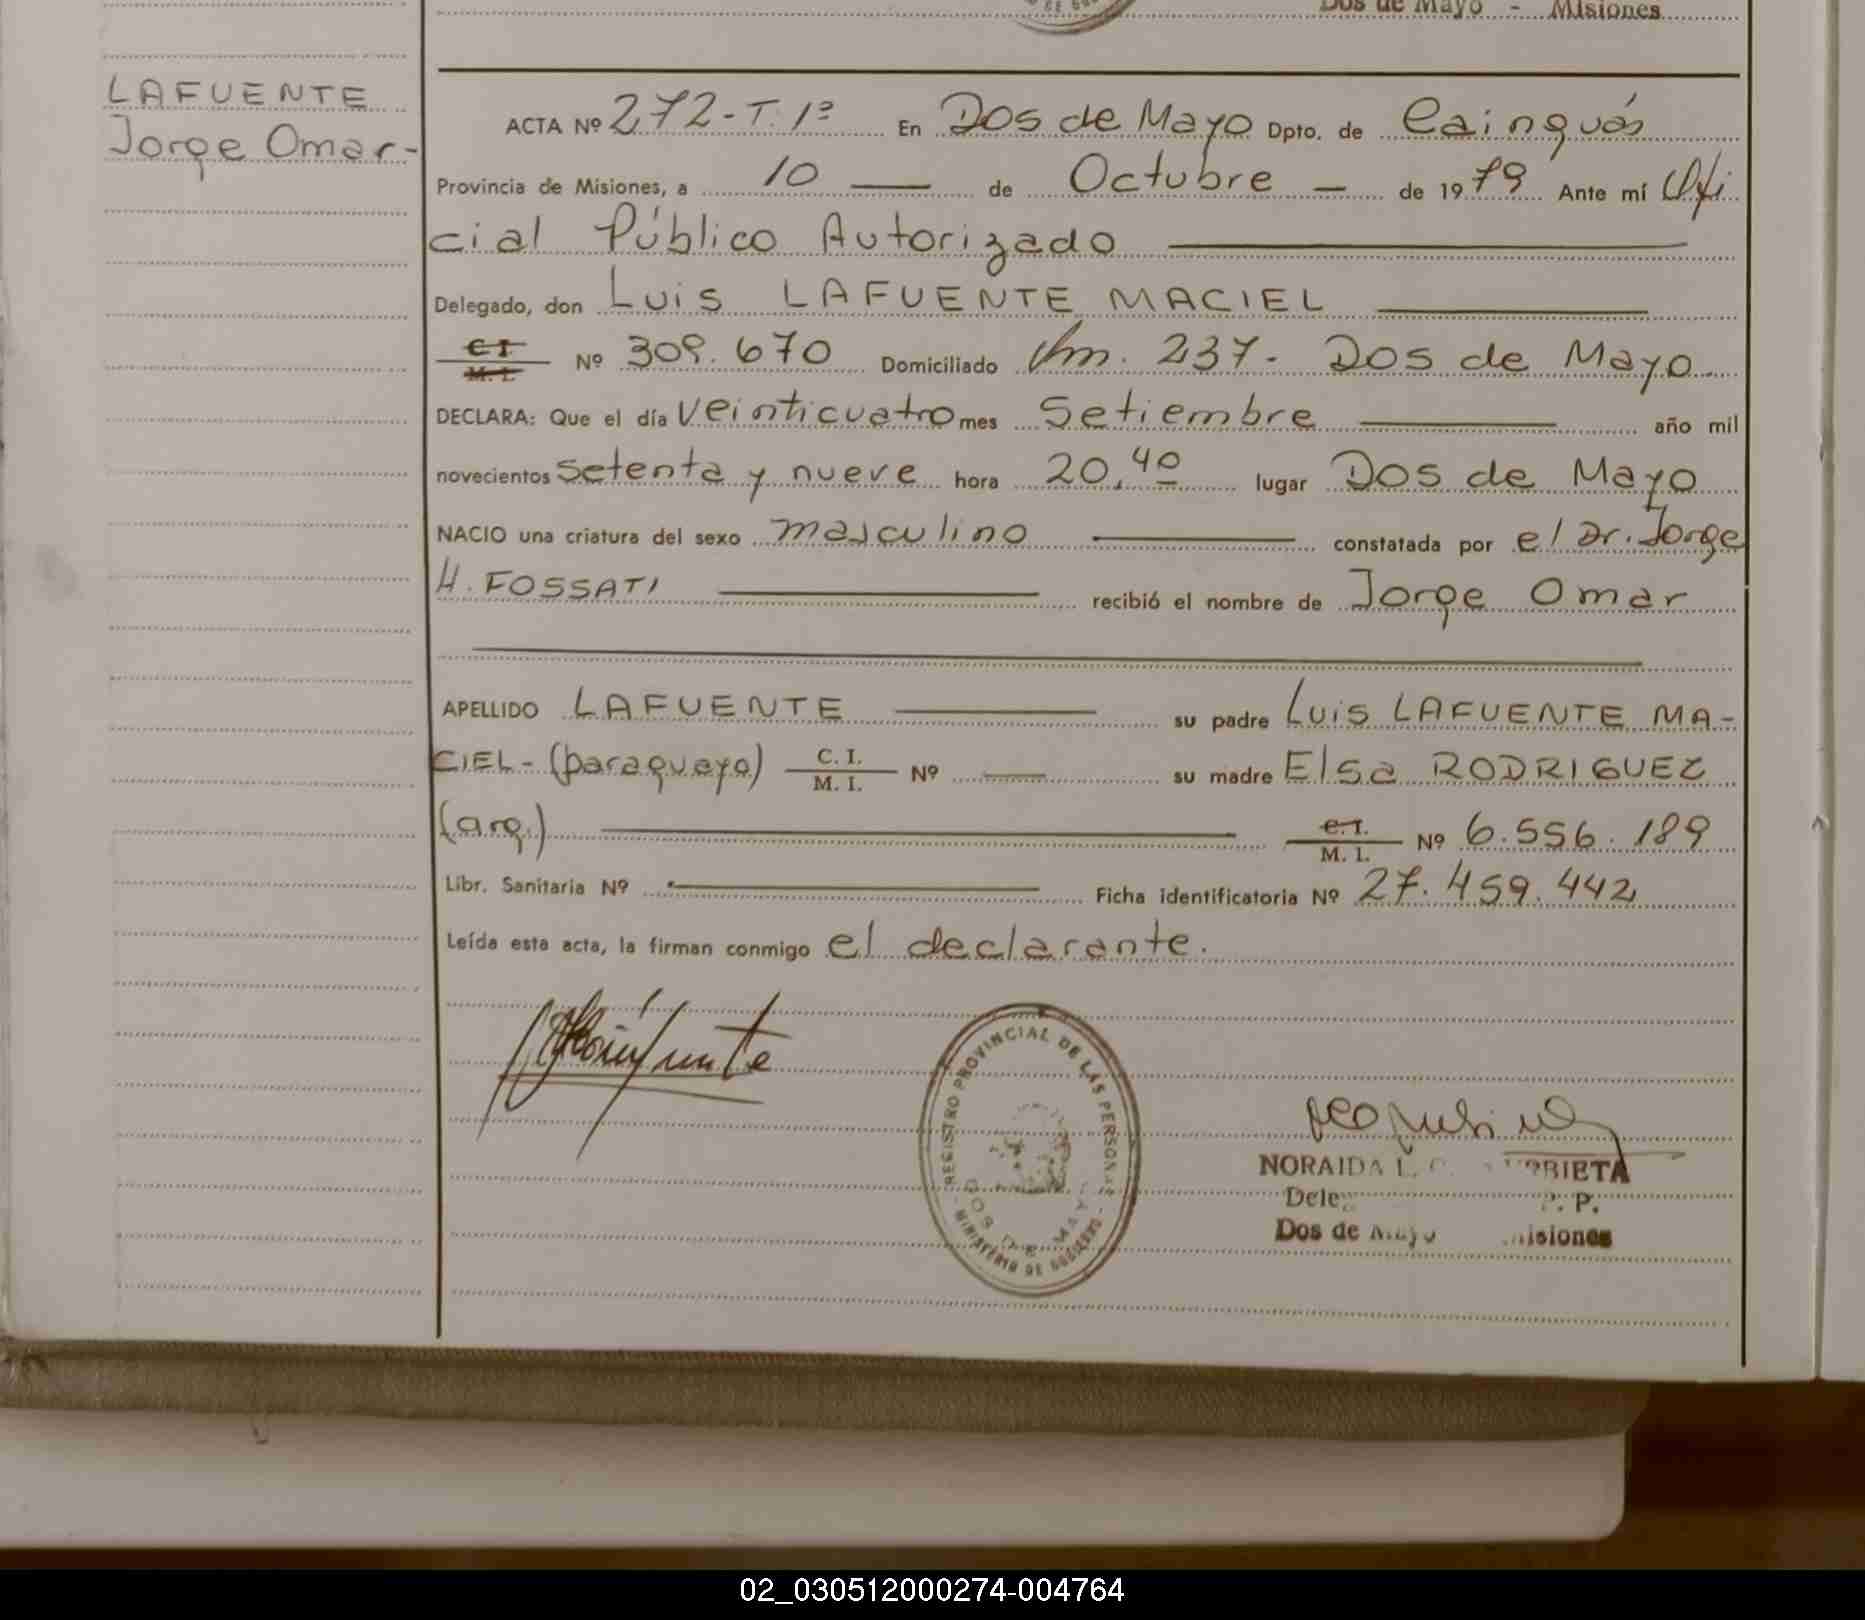 Dos de Mayo - Misiones
LAFUENTE
Jorge Omar-
ACTA Nº 272-T. 1º En Dos de Mayo Dpto. de Cainguás
Provincia de Misiones, a 10 — de Octubre — de 1979 Ante mí Ofi
cial Público Autorizado
Delegado, don Luis LAFUENTE MACIEL
C. I.
M. I.
Nº 309.670 Domiciliado Km. 237- Dos de Mayo
DECLARA: Que el día veinticuatro mes Setiembre año mil
novecientos setenta y nueve hora 20,40 lugar Dos de Mayo
NACIO una criatura del sexo masculino constatada por el Dr. Jorge
H. FOSSATI recibió el nombre de Jorge Omar
APELLIDO LAFUENTE su padre Luis LAFUENTE MA-
CIEL- (paraguayo) C. I. / M. I. Nº — su madre Elsa RODRIGUEZ
(arg.) C. I. / M. I. Nº 6.556.189
Libr. Sanitaria Nº — Ficha identificatoria Nº 27.459.442
Leída esta acta, la firman conmigo el declarante.
REGISTRO PROVINCIAL DE LAS PERSONAS
DOS DE MAYO
MINISTERIO DE GOBIERNO
NORAIDA L.
Dos de Mayo Misiones
02_030512000274-004764